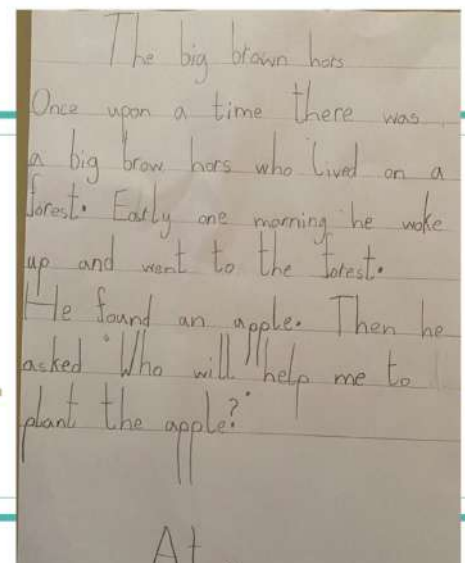 The big brown hors
Once upon a time there was
a big brow hors who lived on a
forest. Early one morning he woke
up and went to the forest.
He found an apple. Then he
asked "Who will help me to
plant the apple?"
At